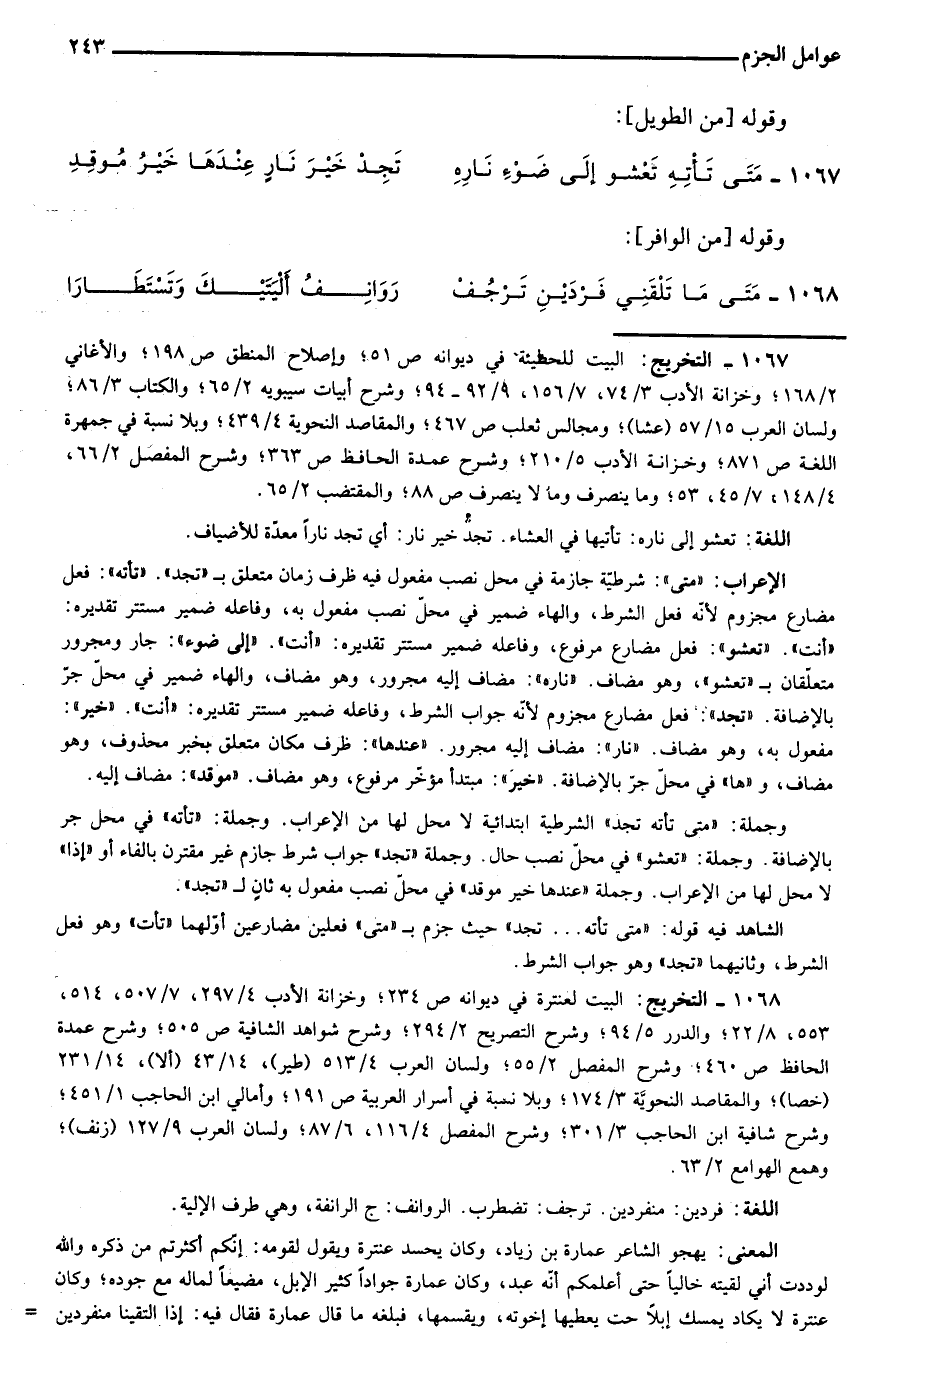 عوامل الجزم ٢٤٣
وقوله [من الطويل]:
١٠٦٧ - مَتَى تَأْتِهِ تَعْشو إِلَى ضَوْءِ نَارِهِ تَجِدْ خَيْرَ نَارٍ عِنْدَهَا خَيْرُ مُوقِدِ
وقوله [من الوافر]:
١٠٦٨ - مَتَى مَا تَلْقَنِي فَرْدَيْنِ تَرْجُفْ رَوَانِفُ أَلْيَتَيْكَ وَتُسْتَطَارَا
١٠٦٧ - التخريج: البيت للحطيئة في ديوانه ص ٥١؛ وإصلاح المنطق ص ١٩٨؛ والأغاني
١٦٨/٢؛ وخزانة الأدب ٧٤/٣، ١٥٦/٧، ٩٢/٩ - ٩٤؛ وشرح أبيات سيبويه ٦٥/٢؛ والكتاب ٨٦/٣؛
ولسان العرب ٥٧/١٥ (عشا)؛ ومجالس ثعلب ص ٤٦٧؛ والمقاصد النحوية ٤٣٩/٤؛ وبلا نسبة في جمهرة
اللغة ص ٨٧١؛ وخزانة الأدب ٢١٠/٥؛ وشرح عمدة الحافظ ص ٣٦٣؛ وشرح المفصل ٦٦/٢،
١٤٨/٤، ٤٥/٧، ٥٣؛ وما ينصرف وما لا ينصرف ص ٨٨؛ والمقتضب ٦٥/٢.
اللغة: تعشو إلى ناره: تأتيها في العشاء. تجدُ خير نار: أي تجد ناراً معدّة للأضياف.
الإعراب: «متى»: شرطيّة جازمة في محل نصب مفعول فيه ظرف زمان متعلق بـ «تجد». «تأته»: فعل
مضارع مجزوم لأنّه فعل الشرط، والهاء ضمير في محلّ نصب مفعول به، وفاعله ضمير مستتر تقديره:
«أنت». «تعشو»: فعل مضارع مرفوع، وفاعله ضمير مستتر تقديره: «أنت». «إلى ضوء»: جار ومجرور
متعلّقان بـ «تعشو»، وهو مضاف. «ناره»: مضاف إليه مجرور، وهو مضاف، والهاء ضمير في محلّ جرّ
بالإضافة. «تجد»: فعل مضارع مجزوم لأنّه جواب الشرط، وفاعله ضمير مستتر تقديره: «أنت». «خير»:
مفعول به، وهو مضاف. «نار»: مضاف إليه مجرور. «عندها»: ظرف مكان متعلق بخبر محذوف، وهو
مضاف، و «ها» في محلّ جرّ بالإضافة. «خيرَ»: مبتدأ مؤخّر مرفوع، وهو مضاف. «موقد»: مضاف إليه.
وجملة: «متى تأته تجد» الشرطية ابتدائية لا محل لها من الإعراب. وجملة: «تأته» في محل جر
بالإضافة. وجملة: «تعشو» في محلّ نصب حال. وجملة «تجد» جواب شرط جازم غير مقترن بالفاء أو «إذا»
لا محل لها من الإعراب. وجملة «عندها خير موقد» في محلّ نصب مفعول به ثانٍ لـ «تجد».
الشاهد فيه قوله: «متى تأته... تجد» حيث جزم بـ «متى» فعلين مضارعين أوّلهما «تأت» وهو فعل
الشرط، وثانيهما «تجد» وهو جواب الشرط.
١٠٦٨ - التخريج: البيت لعنترة في ديوانه ص ٢٣٤؛ وخزانة الأدب ٢٩٧/٤، ٥٠٧/٧، ٥١٤،
٥٥٣، ٢٢/٨؛ والدرر ٩٤/٥؛ وشرح التصريح ٢٩٤/٢؛ وشرح شواهد الشافية ص ٥٠٥؛ وشرح عمدة
الحافظ ص ٤٦٠؛ وشرح المفصل ٥٥/٢؛ ولسان العرب ٥١٣/٤ (طير)، ٤٣/١٤ (ألا)، ٢٣١/١٤
(خصا)؛ والمقاصد النحويّة ١٧٤/٣؛ وبلا نسبة في أسرار العربية ص ١٩١؛ وأمالي ابن الحاجب ٤٥١/١؛
وشرح شافية ابن الحاجب ٣٠١/٣؛ وشرح المفصل ١١٦/٤، ٨٧/٦؛ ولسان العرب ١٢٧/٩ (زنف)؛
وهمع الهوامع ٦٣/٢.
اللغة: فردين: منفردين. ترجف: تضطرب. الروانف: ج الرانفة، وهي طرف الإلية.
المعنى: يهجو الشاعر عمارة بن زياد، وكان يحسد عنترة ويقول لقومه: إنّكم أكثرتم من ذكره والله
لوددت أني لقيته خالياً حتى أعلمكم أنّه عبد، وكان عمارة جواداً كثير الإبل، مضيعاً لماله مع جوده؛ وكان
عنترة لا يكاد يمسك إبلاً حت يعطيها إخوته، ويقسمها، فبلغه ما قال عمارة فقال فيه: إذا التقينا منفردين =